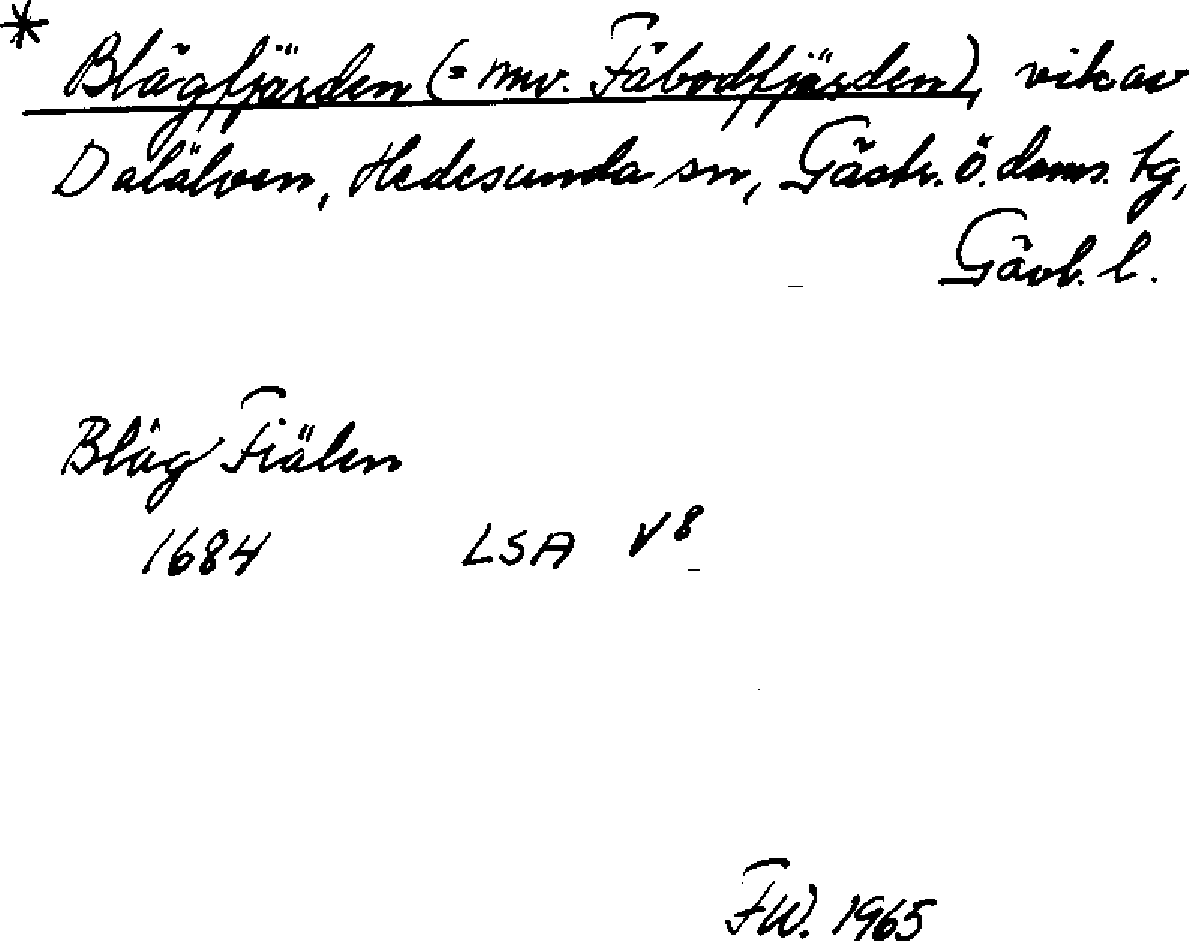 * Blågfjärden (= nuv. Fäbodfjärden), vik av
Dalälven, Hedesunda sn, Gästr. ö. doms. tg,
Gävl. l.
Blåg Fiälen
1684 LSA V8
FW. 1965